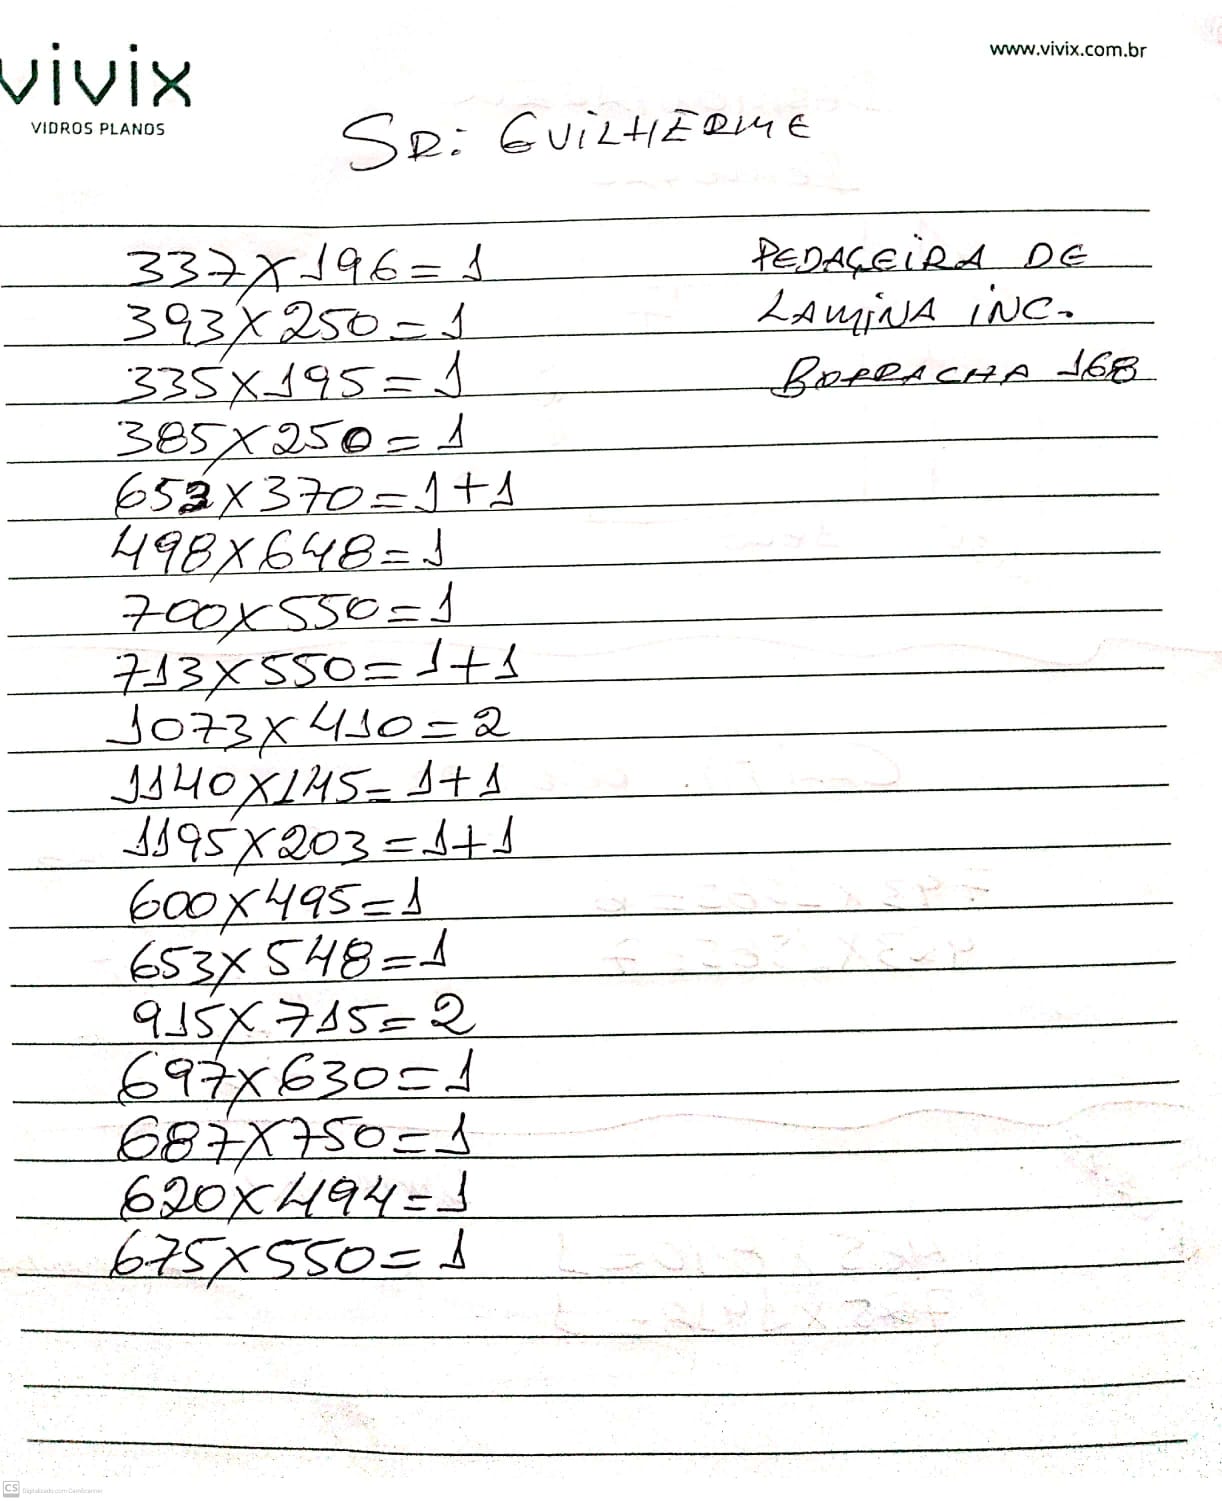 vivix
VIDROS PLANOS
www.vivix.com.br
SR: GUILHERME
337X196=1
393X250=1
335X195=1
385X250=1
653X370=1+1
498X648=1
700X550=1
713X550=1+1
1073X410=2
1140X145=1+1
1195X203=1+1
600X495=1
653X548=1
915X715=2
697X630=1
687X750=1
620X494=1
675X550=1
PEDAÇEIRA DE
LAMINA INC.
BORRACHA 168
CS Digitalizado com CamScanner